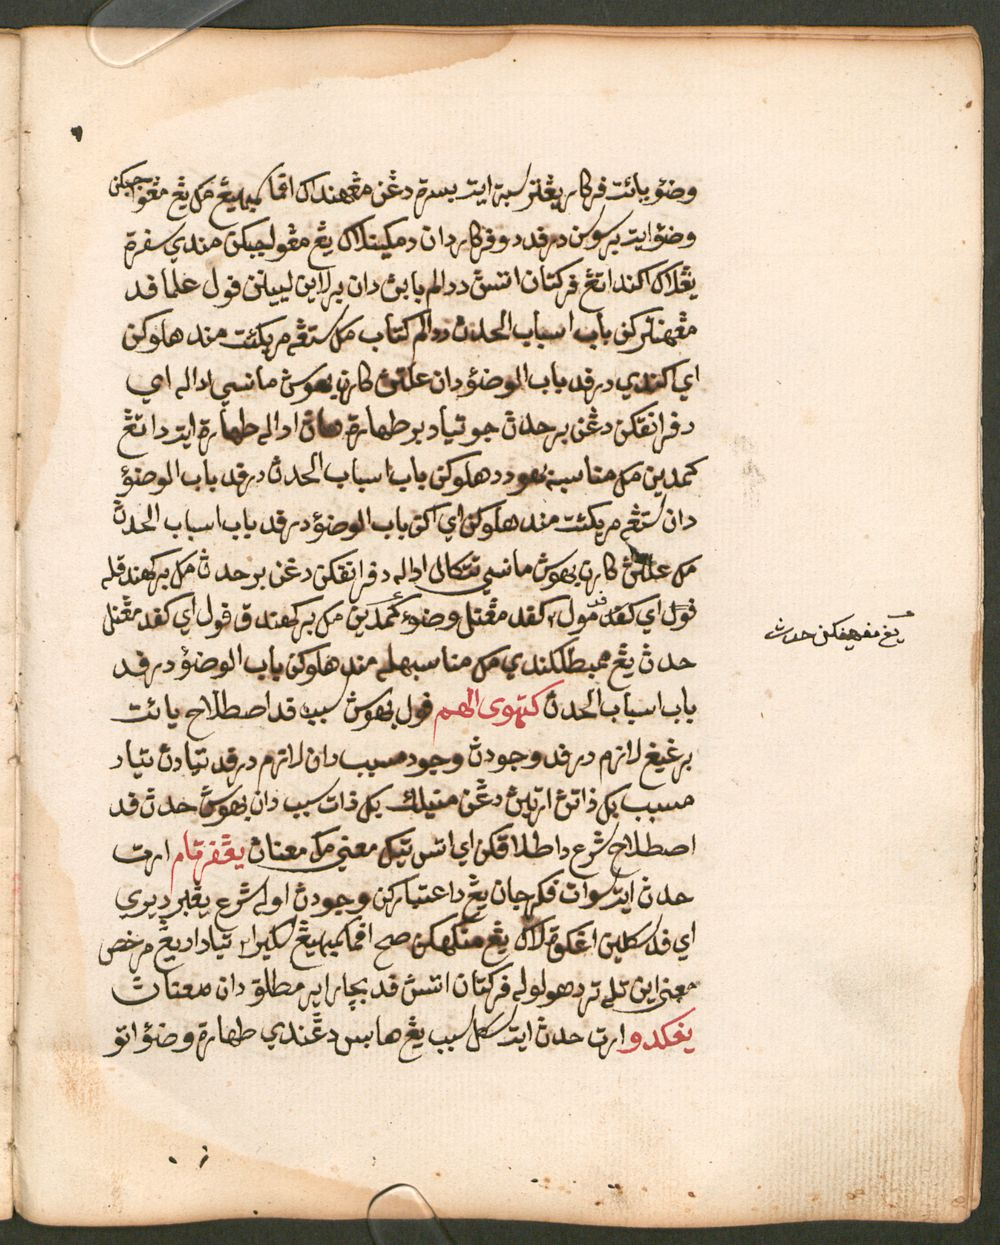 وضؤ يائت فركار يڠ لتر سبة ايت بسرة دڠن مڠهنداك اڤما كمبهيڠ مك يڠ مڠوجبكن
وضؤ ايت برسون درفد دوفركار دان دمكينلاك يڠ مڠوجبكن مندي سفرة
يڠلاݢ اكنداتڠ فركتان اتسن ددالم بابن دان برلاين لبيلن قول علما قد
مڠهنتركن باب اسباب الحدث ددالم كتاب مك ستڠه مريكئت مندهلوكن
اي اكندي درفد باب الوضؤ دان علتن كارن بهوس مانسي اداله اي
دفرانقكن دڠن برحدث جو تياد برطهارة هاڽ اداله طهارة ايت داتڠ
كمدين مك مناسبه بهود دهلوكن باب اسباب الحدث درفد باب الوضؤ
دان ستڠه مريكئت مندهلوكن اي اكن باب الوضؤ درفد باب اسباب الحدث
مك علتن كارن بهوس مانسي تتكال اداله دفرانقكن دڠن برحدث مك بركهندقله
قول اي كفد مول٢ كفد مڠنل وضوء كمدين مك بركهندق قول اي كفد مڠنل
حدث يڠ ممبطلكندي مك مناسبهله مندهلوكن باب الوضؤ درفد
باب اسباب الحدث كتهوي الهم قول بهوس سبب قد اصطلاح يائت
برغيڠ لازم درفد وجودڽ وجود مسبب دان لازم درفد تيادڽ تياد
مسبب بݢ ذاتڽ ارتيڽ دڠن منيلك بݢ ذات سبب دان بهوس حدث قد
اصطلاح شرع داطلاقكن اي اتس تيݢ معني مك معناڽ يڠفرتام ارت
حدث ايت سوات فكرجان يڠ داعتباركن وجودڽ اوله شرع يڠبرديري
اي فد سكلين اڠݢوة لاݢ يڠ منݢهكن صح اڤما كمبهيڠ سكيرا٢ تياد اد يڠ مرخص
معني اين تله تردهولوله فركتان اتسڽ فد بچار اير مطلق دان معناڽ
يڠكدو ارت حدث ايت سكل سبب يڠ هابس دڠندي طهارة وضؤ اتو
يڠ مڠهيڠكن حدث